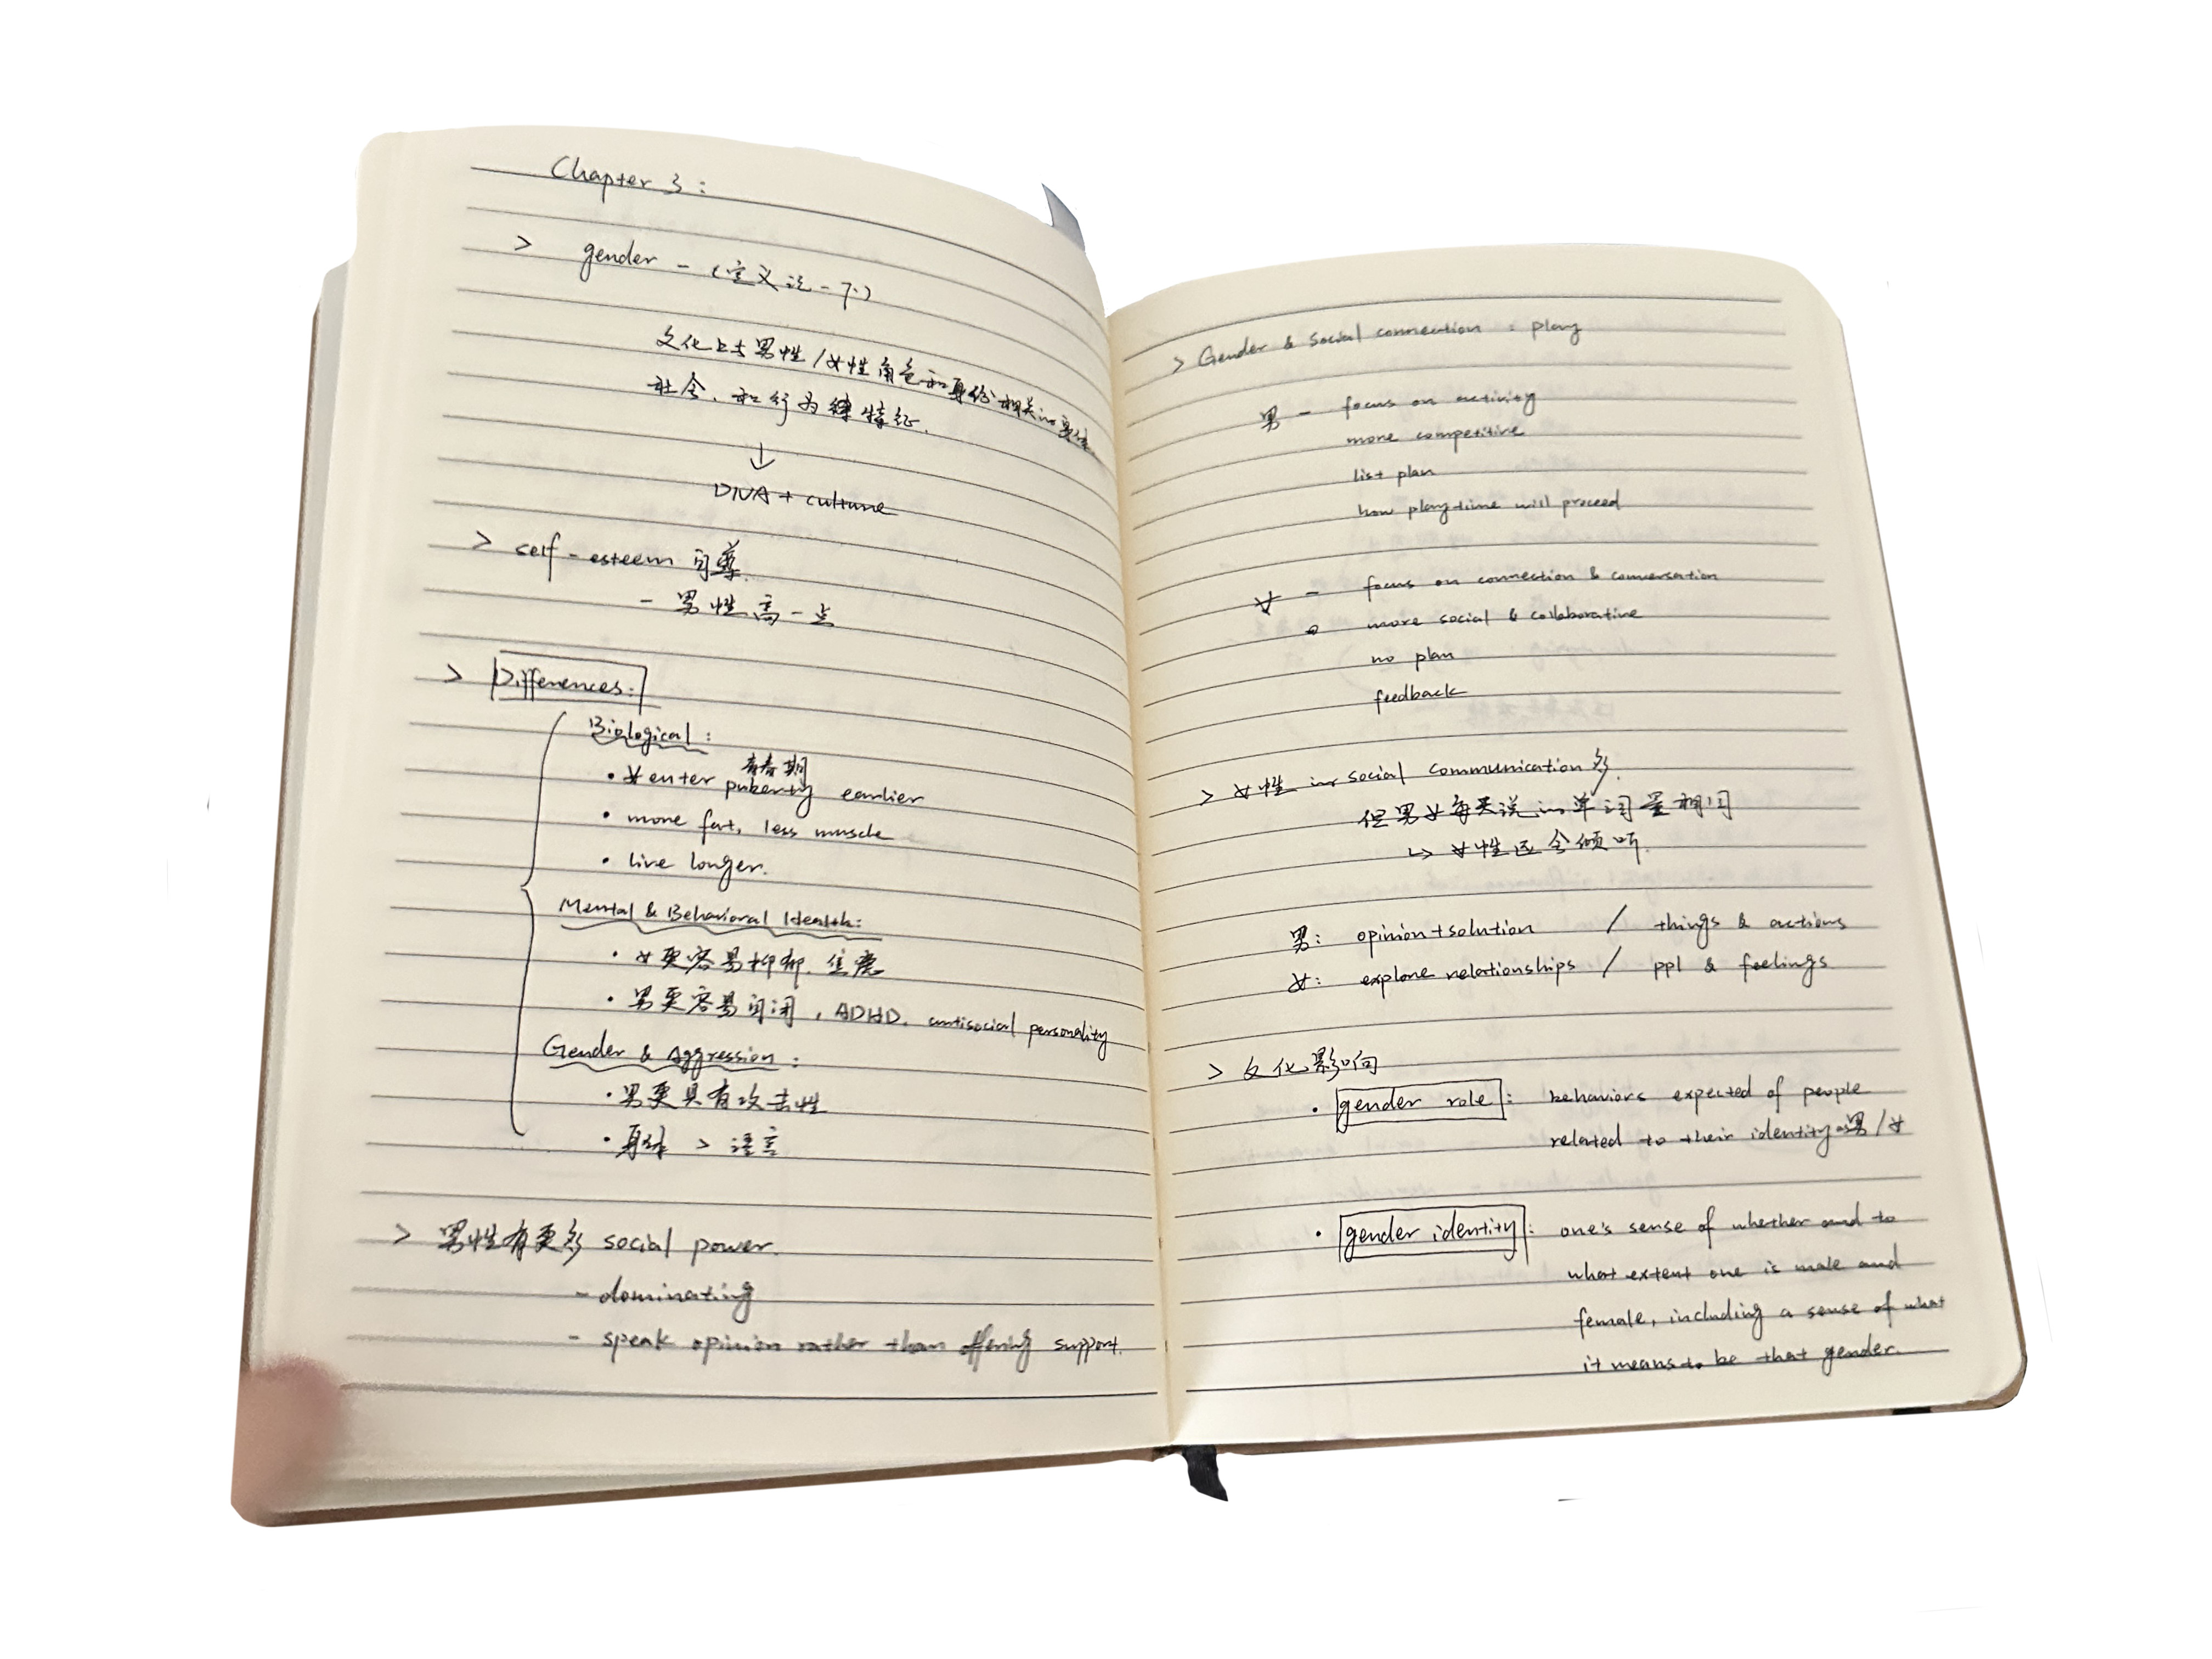 Chapter 3:
> gender - (定义论一下)
文化上与男性/女性角色和身份相关的
社会、和行为 特征.
↓
DNA + culture
> self-esteem 自尊.
- 男性高一点
> Differences:
Biological:
青春期
• 女 enter puberty earlier
• more fat, less muscle
• live longer.
Mental & Behavioral Health:
• 女更容易抑郁. 焦虑
• 男更容易自闭, ADHD. antisocial personality
Gender & Aggression:
• 男更具有攻击性
• 身体 > 语言
> 男性有更多 social power.
- dominating
- speak opinion rather than offering support.
> Gender & Social connection: play
男 - focus on activity
more competitive
list plan
how playtime will proceed
女 - focus on connection & conversation
more social & collaborative
no plan
feedback
> 女性 in social communication 多.
但男女每天说的单词量相同
↳ 女性还会倾听.
男: opinion+solution / things & actions
女: explore relationships / ppl & feelings.
> 文化影响
• gender role: behaviors expected of people
related to their identity as男/女
• gender identity: one's sense of whether and to
what extent one is male and
female, including a sense of what
it means to be that gender.